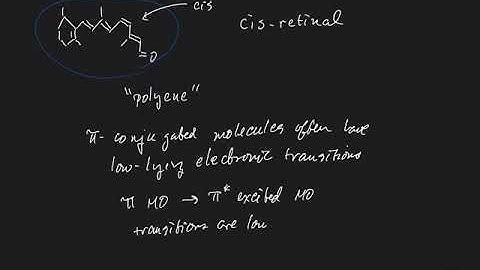 cis
cis-retinal
O
"polyene"
π-conjugated molecules often have
low-lying electronic transitions
π MO → π* excited MO
transitions are low